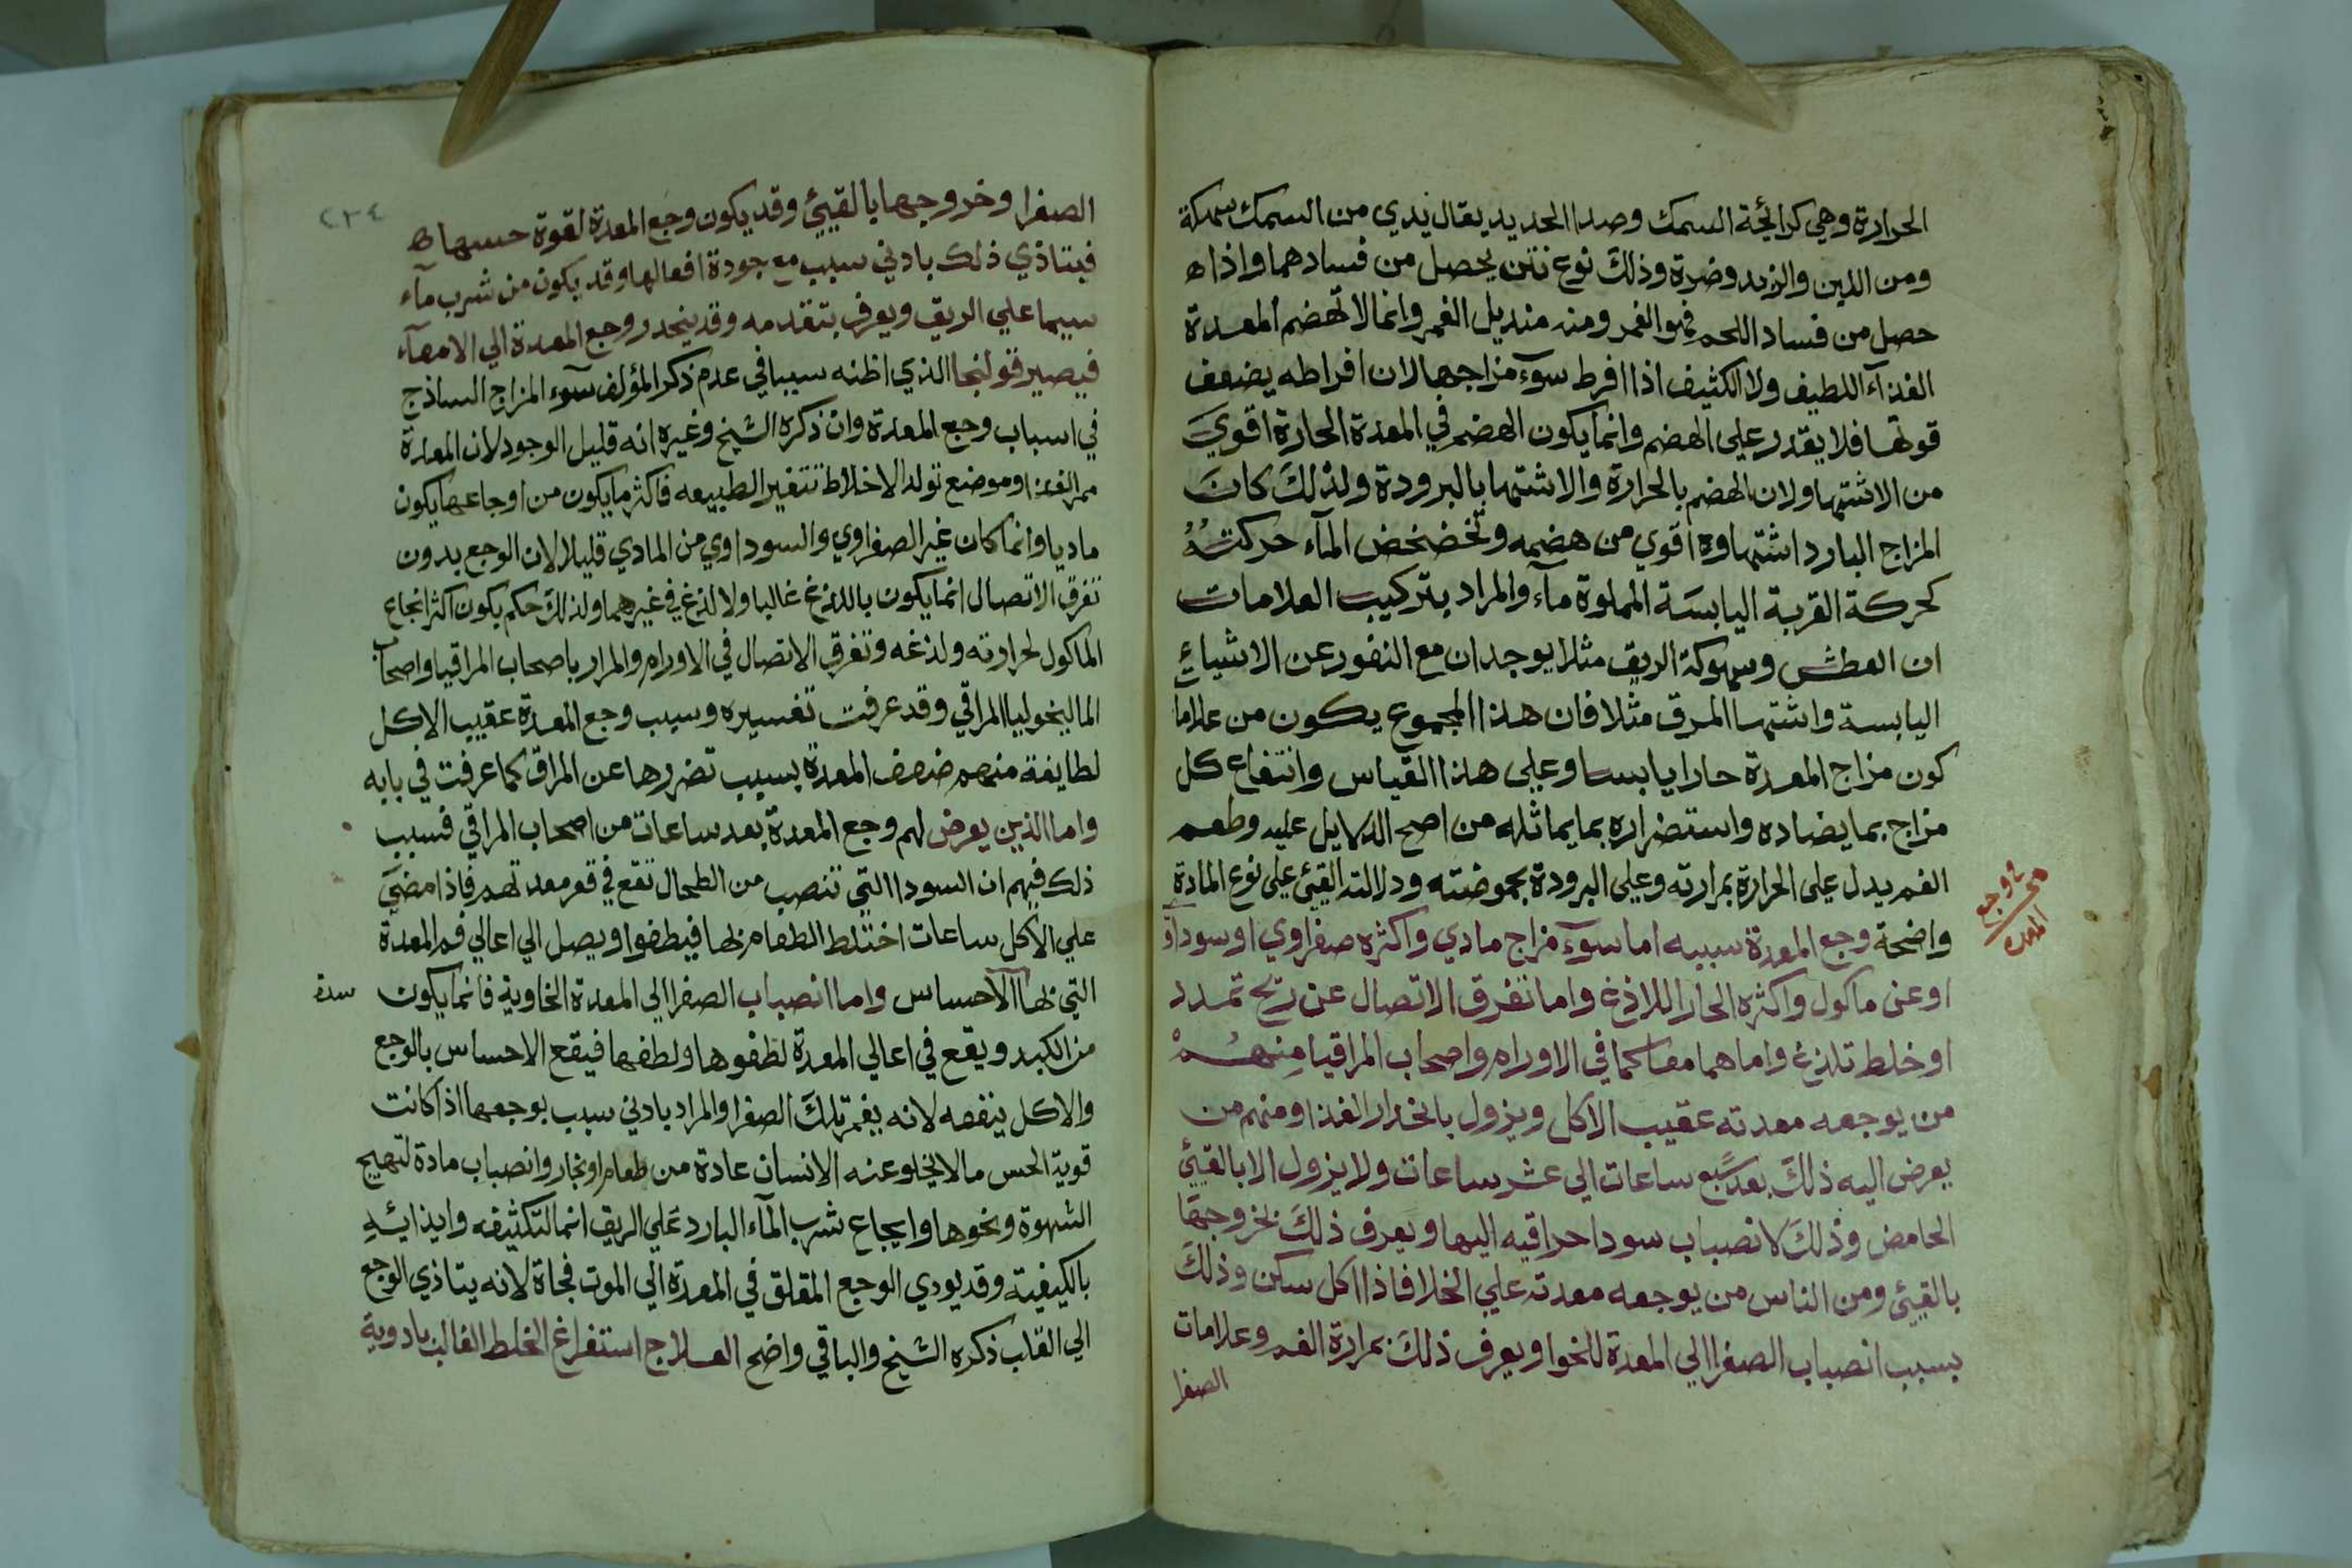 الحرارة وهي كرائجة السمك وصداا الحديد يقال يدي من السمك سهكة
ومن اللبن والزبد وضرة وذلك نوع نتن يحصل من فسادهما واذا ه
حصل من فساد اللحم فهو الغمر ومنه منديل الغمر وانما لا تهضم المعدة
الغذآء اللطيف ولا الكثيف اذا افرط سوٓء مزاجها لان افراطه يضعف
قوتها فلا يقدر علي الهضم وانما يكون الهضم في المعدة الحارة اقوي
من الاشتها ولان الهضم بالحرارة والاشتها بالبرودة ولذلك كان
المزاج البارد اشتهاوه اقوي من هضمه وتخضخض المآء حركته
كحركة القربة اليابسة المملوة مآء والمراد بتركيب العلامات
ان العطش وسهوكة الريق مثلا يوجدان مع النفور عن الاشياء
اليابسة واشتها المرق مثلا فان هذا المجموع يكون من علاما
كون مزاج المعدة حارا يابسا وعلي هذا القياس وانتفاع كل
مزاج بما يضاده واستضراره بما يماثله من اصح الدلايل عليه وطعم
الفم يدل علي الحرارة بمرارته وعلي البرودة بحموضته ودلالة القيئ علي نوع المادة
واضحة وجع المعدة سببه اما سوٓء مزاج مادي واكثره صفراوي او سوداو
او عن ماكول واكثره الحار اللاذع واما تفرق الاتصال عن ريح تمدد
او خلط تلذع واما هما معا كما في الاورام واصحاب المراقيا منهم
من يوجعه معدته عقيب الاكل ويزول بانحدار الغذا ومنهم من
يعرض اليه ذلك بعد سبع ساعات الي عشر ساعات ولا يزول الا بالقيئ
الحامض وذلك لانصباب سودا حراقيه اليها ويعرف ذلك بخروجها
بالقيئ ومن الناس من يوجعه معدته علي الخلا فاذا اكل سكن وذلك
بسبب انصباب الصفرا الي المعدة للخوا ويعرف ذلك بمرارة الفم وعلامات
الصفرا
وجع
المعدة
٢٣٤
الصفرا وخروجها بالقيئ وقد يكون وجع المعدة لقوة حسها ه
فيتاذي ذلك بادني سبب مع جودة افعالها وقد يكون من شرب مآء
سيما علي الريق ويعرف بتقدمه وقد ينحدر وجع المعدة الي الامعآء
فيصير قولنجا الذي اظنه سببا في عدم ذكر المؤلف سوء المزاج الساذج
في اسباب وجع المعدة وان ذكره الشيخ وغيره انه قليل الوجود لان المعدة
ممر الغذا وموضع تولد الاخلاط تتغير الطبيعه فاكثر ما يكون من اوجاعها يكون
ماديا وانما كان غير الصفراوي والسوداوي من المادي قليلا لان الوجع بدون
تفرق الاتصال انما يكون باللذع غالبا ولا لذع في غيرهما ولذلك حكم بكون اكثر انجاع
الماكول لحرارته ولذعه وتفرق الاتصال في الاورام والمراد باصحاب المراقيا واصحاب
الماليخوليا المراقي وقد عرفت تفسيره وسبب وجع المعدة عقيب الاكل
لطايفة منهم ضعف المعدة بسبب تضررها عن المراق كما عرفت في بابه
واما الذين يعرض لهم وجع المعدة بعد ساعات من اصحاب المراقي فسبب
ذلك فيهم ان السودا التي تنصب من الطحال تقع في قعر معدتهم فاذا مضي
علي الاكل ساعات اختلط الطعام بها فيطفوا ويصل الي اعالي فم المعدة
التي لها الاحساس واما انصباب الصفرا الي المعدة الخاوية فانما يكون
من الكبد ويقع في اعالي المعدة لطفوها ولطفها فيقع الاحساس بالوجع
والاكل ينفعه لانه يغمر تلك الصفرا والمراد بادني سبب يوجعها اذا كانت
قوية الحس ما لا يخلو عنه الانسان عادة من طعام او بخار وانصباب مادة لتهيج
الشهوة ونحوها وايجاع شرب المآء البارد علي الريق انما لتكثيفه وايذائه
بالكيفيته وقد يودي الوجع المقلق في المعدة الي الموت فجاة لانه يتاذي الوجع
الي القلب ذكره الشيخ والباقي واضح العلاج استفراغ الخلط الغالب بادوية